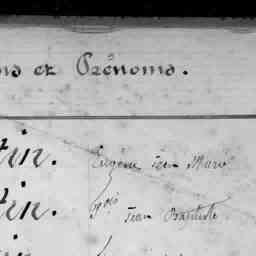 ms et Prénoms.
tin. Eugène Jean Marie
tin. fçois Jean Baptiste
tin.